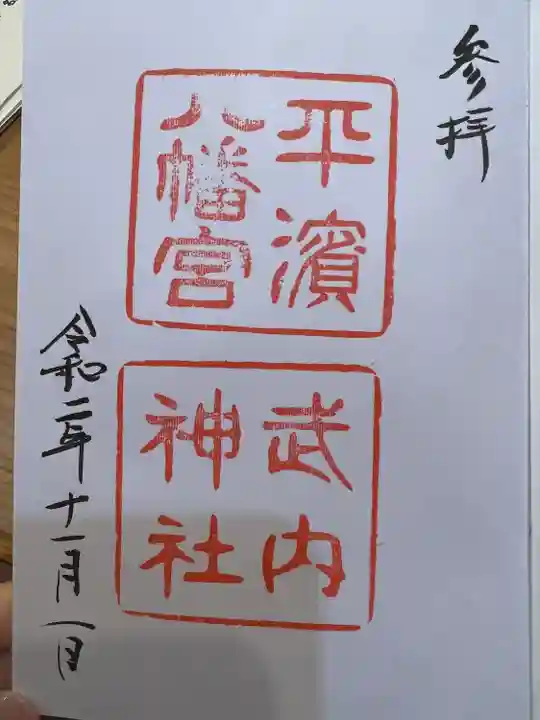 参拝
平濱
八幡宮
武内
神社
令和二年十一月一日